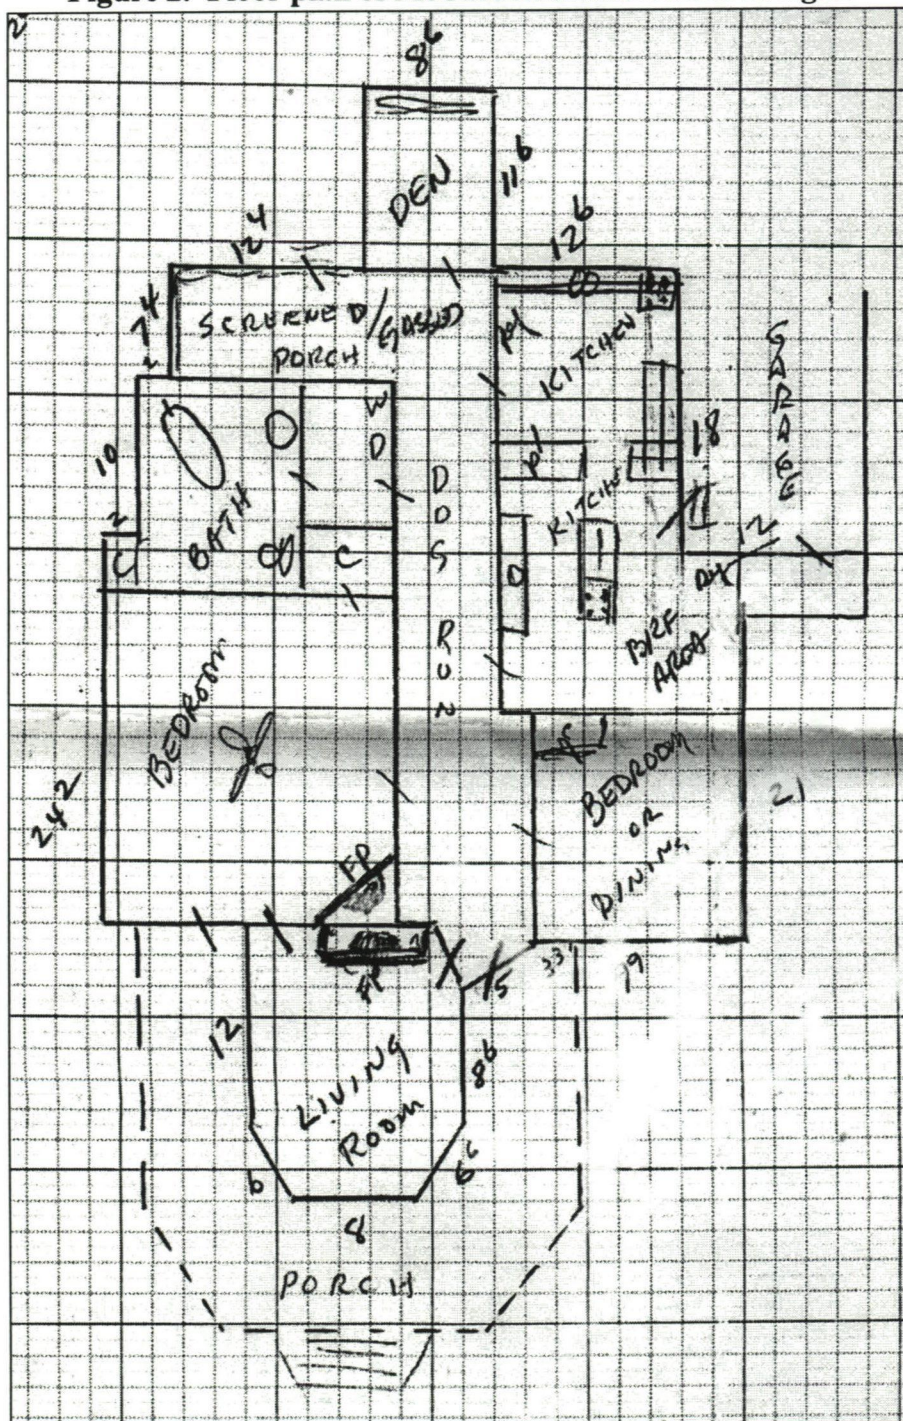 8⁶
DEN
11⁶
12⁴
12⁶
7⁴
SCREENED/GLASSED
PORCH
KITCHEN
GARAGE
2
WD
10
BATH
2
C
C
DOGS RUN
KITCHEN
18
12
BRF
AREA
BEDROOM
24²
BEDROOM
OR
DINING
21
FP
FP
5
33'
19
12
LIVING
ROOM
8⁶
6
6⁶
8
PORCH